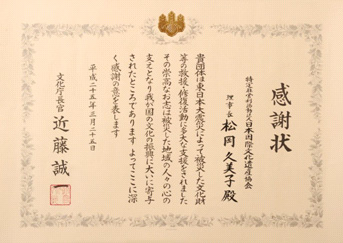 感謝状
特定非営利活動法人日本国際文化遺産協会
理事長 松岡久美子殿
貴団体は東日本大震災によって被災した文化財
等の救援・修復活動に多大な支援をされました
その崇高なお志は被災した地域の人々の心の
支えとなり我が国の文化の振興に大いに寄与
されたところであります よってここに深
く感謝の意を表します
平成二十五年三月二十五日
文化庁長官 近藤誠一